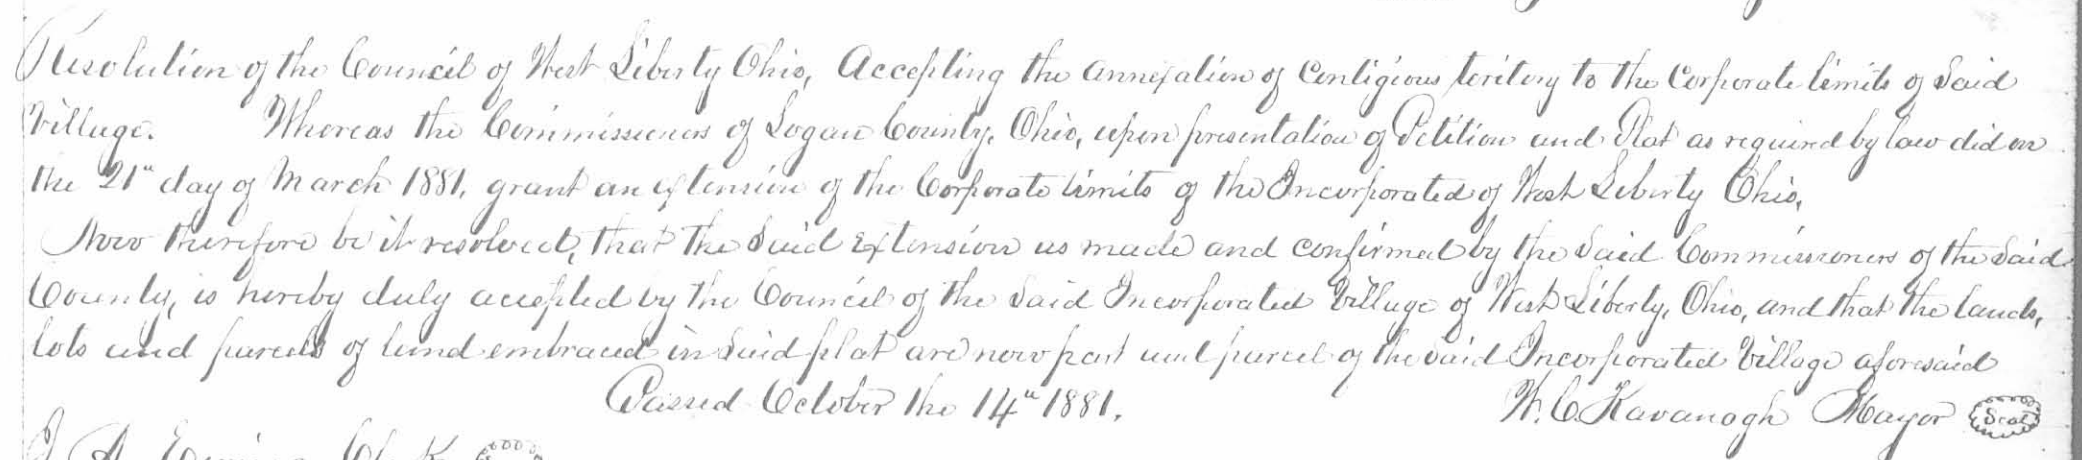 Resolution of the Council of West Liberty Ohio, Accepting the annexation of Contigious teritory to the Corporate limits of Said
Village. Whereas the Commissioners of Logan County, Ohio, upon presentation of Petition and Plat as required by law did on
the 21" day of March 1881, grant an extension of the Corporate limits of the Incorporated of West Liberty Ohio,
Now therefore be it resolved, that the Said Extension as made and confirmed by the Said Commissioners of the Said
County, is hereby duly accepted by the Council of the Said Incorporated Village of West Liberty, Ohio, and that the lands,
lots and parcels of land embraced in Said plat are now part and parcel of the Said Incorporated Village aforesaid
Passed October the 14" 1881.
W. C. Kavanagh Mayor Seal
Clerk